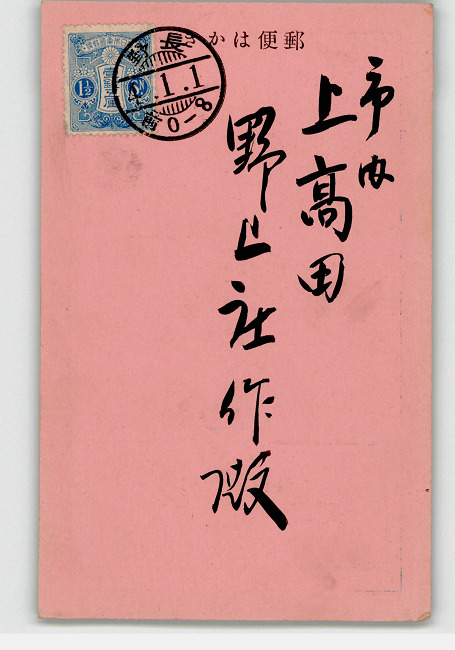 郵便はかき
市内
上高田
野上庄作殿
1½
長野
.1.1
0-8